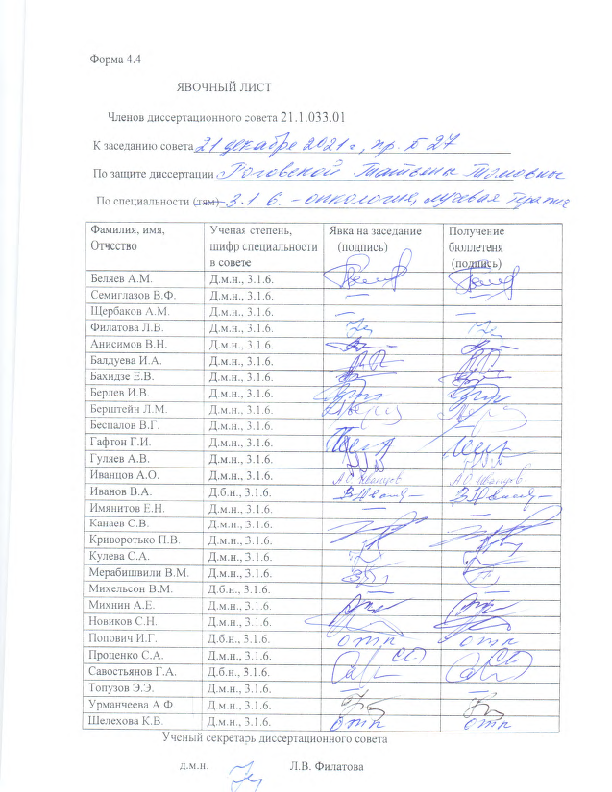 Форма 4.4
ЯВОЧНЫЙ ЛИСТ
Членов диссертационного совета 21.1.033.01
К заседанию совета 21 декабря 2021 г., пр. № 27
По защите диссертации Роговской Татьяны Тимовны
По специальности (ям) 3.1 6. - онкология, лучевая терапия
Фамилия, имя, Отчество Учевая степень, шифр специальности в совете Явка на заседание (подпись) Получение бюллетеня (подпись)
Беляев А.М. Д.м.н., 3.1.6.
Семиглазов В.Ф. Д.м.н., 3.1.6. — —
Щербаков А.М. Д.м.н., 3.1.6. — —
Филатова Л.В. Д.м.н., 3.1.6.
Анисимов В.Н. Д.м.н., 3.1.6.
Балдуева И.А. Д.м.н., 3.1.6.
Бахидзе Е.В. Д.м.н., 3.1.6.
Берлев И.В. Д.м.н., 3.1.6.
Берштейн Л.М. Д.м.н., 3.1.6.
Беспалов В.Г. Д.м.н., 3.1.6.
Гафтон Г.И. Д.м.н., 3.1.6.
Гуляев А.В. Д.м.н., 3.1.6.
Иванцов А.О. Д.м.н., 3.1.6. АО Иванцов АО Иванцов
Иванов В.А. Д.б.н., 3.1.6.
Имянитов Е.Н. Д.м.н., 3.1.6. — —
Канаев С.В. Д.м.н., 3.1.6.
Криворотько П.В. Д.м.н., 3.1.6.
Кулева С.А. Д.м.н., 3.1.6.
Мерабишвили В.М. Д.м.н., 3.1.6.
Михельсон В.М. Д.б.н., 3.1.6. — —
Михнин А.Е. Д.м.н., 3.1.6.
Новиков С.Н. Д.м.н., 3.1.6.
Попович И.Г. Д.б.н., 3.1.6. отп отп
Проценко С.А. Д.м.н., 3.1.6.
Савостьянов Г.А. Д.б.н., 3.1.6.
Топузов Э.Э. Д.м.н., 3.1.6. — —
Урманчеева А.Ф Д.м.н., 3.1.6.
Шелехова К.В. Д.м.н., 3.1.6. отп отп
Ученый секретарь диссертационного совета
д.м.н. Л.В. Филатова